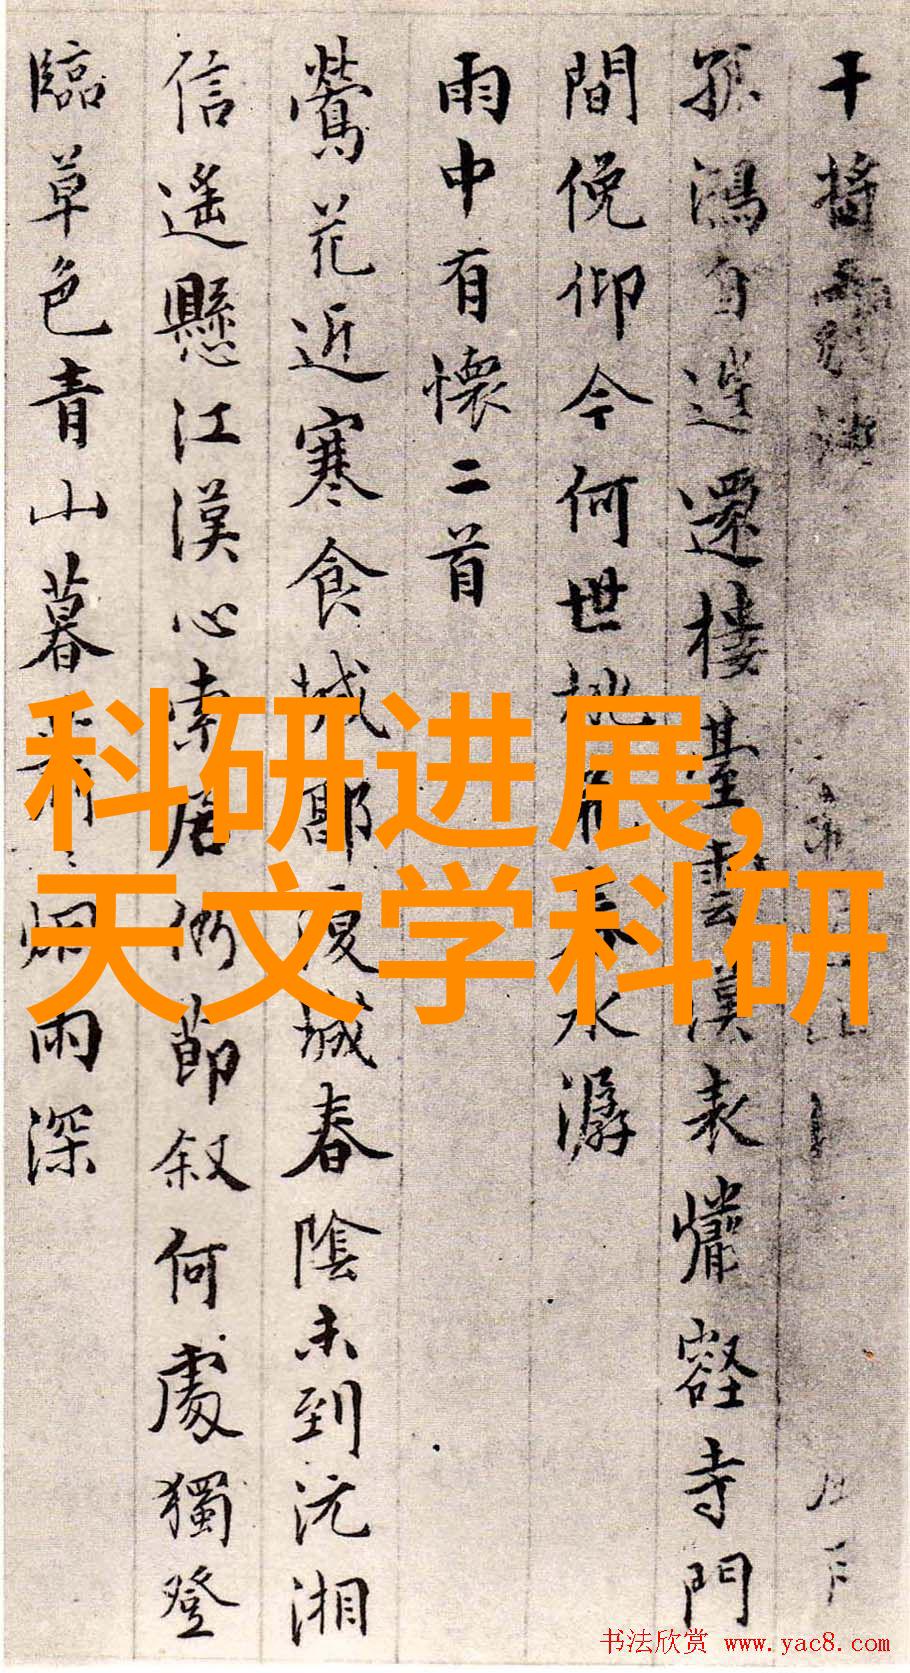 干將
孤鴻自還樓臺雲漢表壑寺門
間俛仰今何世桃花春水潺
雨中有懷二首
鶯花近寒食城復城春陰未到沅湘
信遙懸江漢心索居仍節叙何處獨登
臨草色青山暮烟雨深
科研进展,
天文学科研
书法欣赏 www.yac8.com